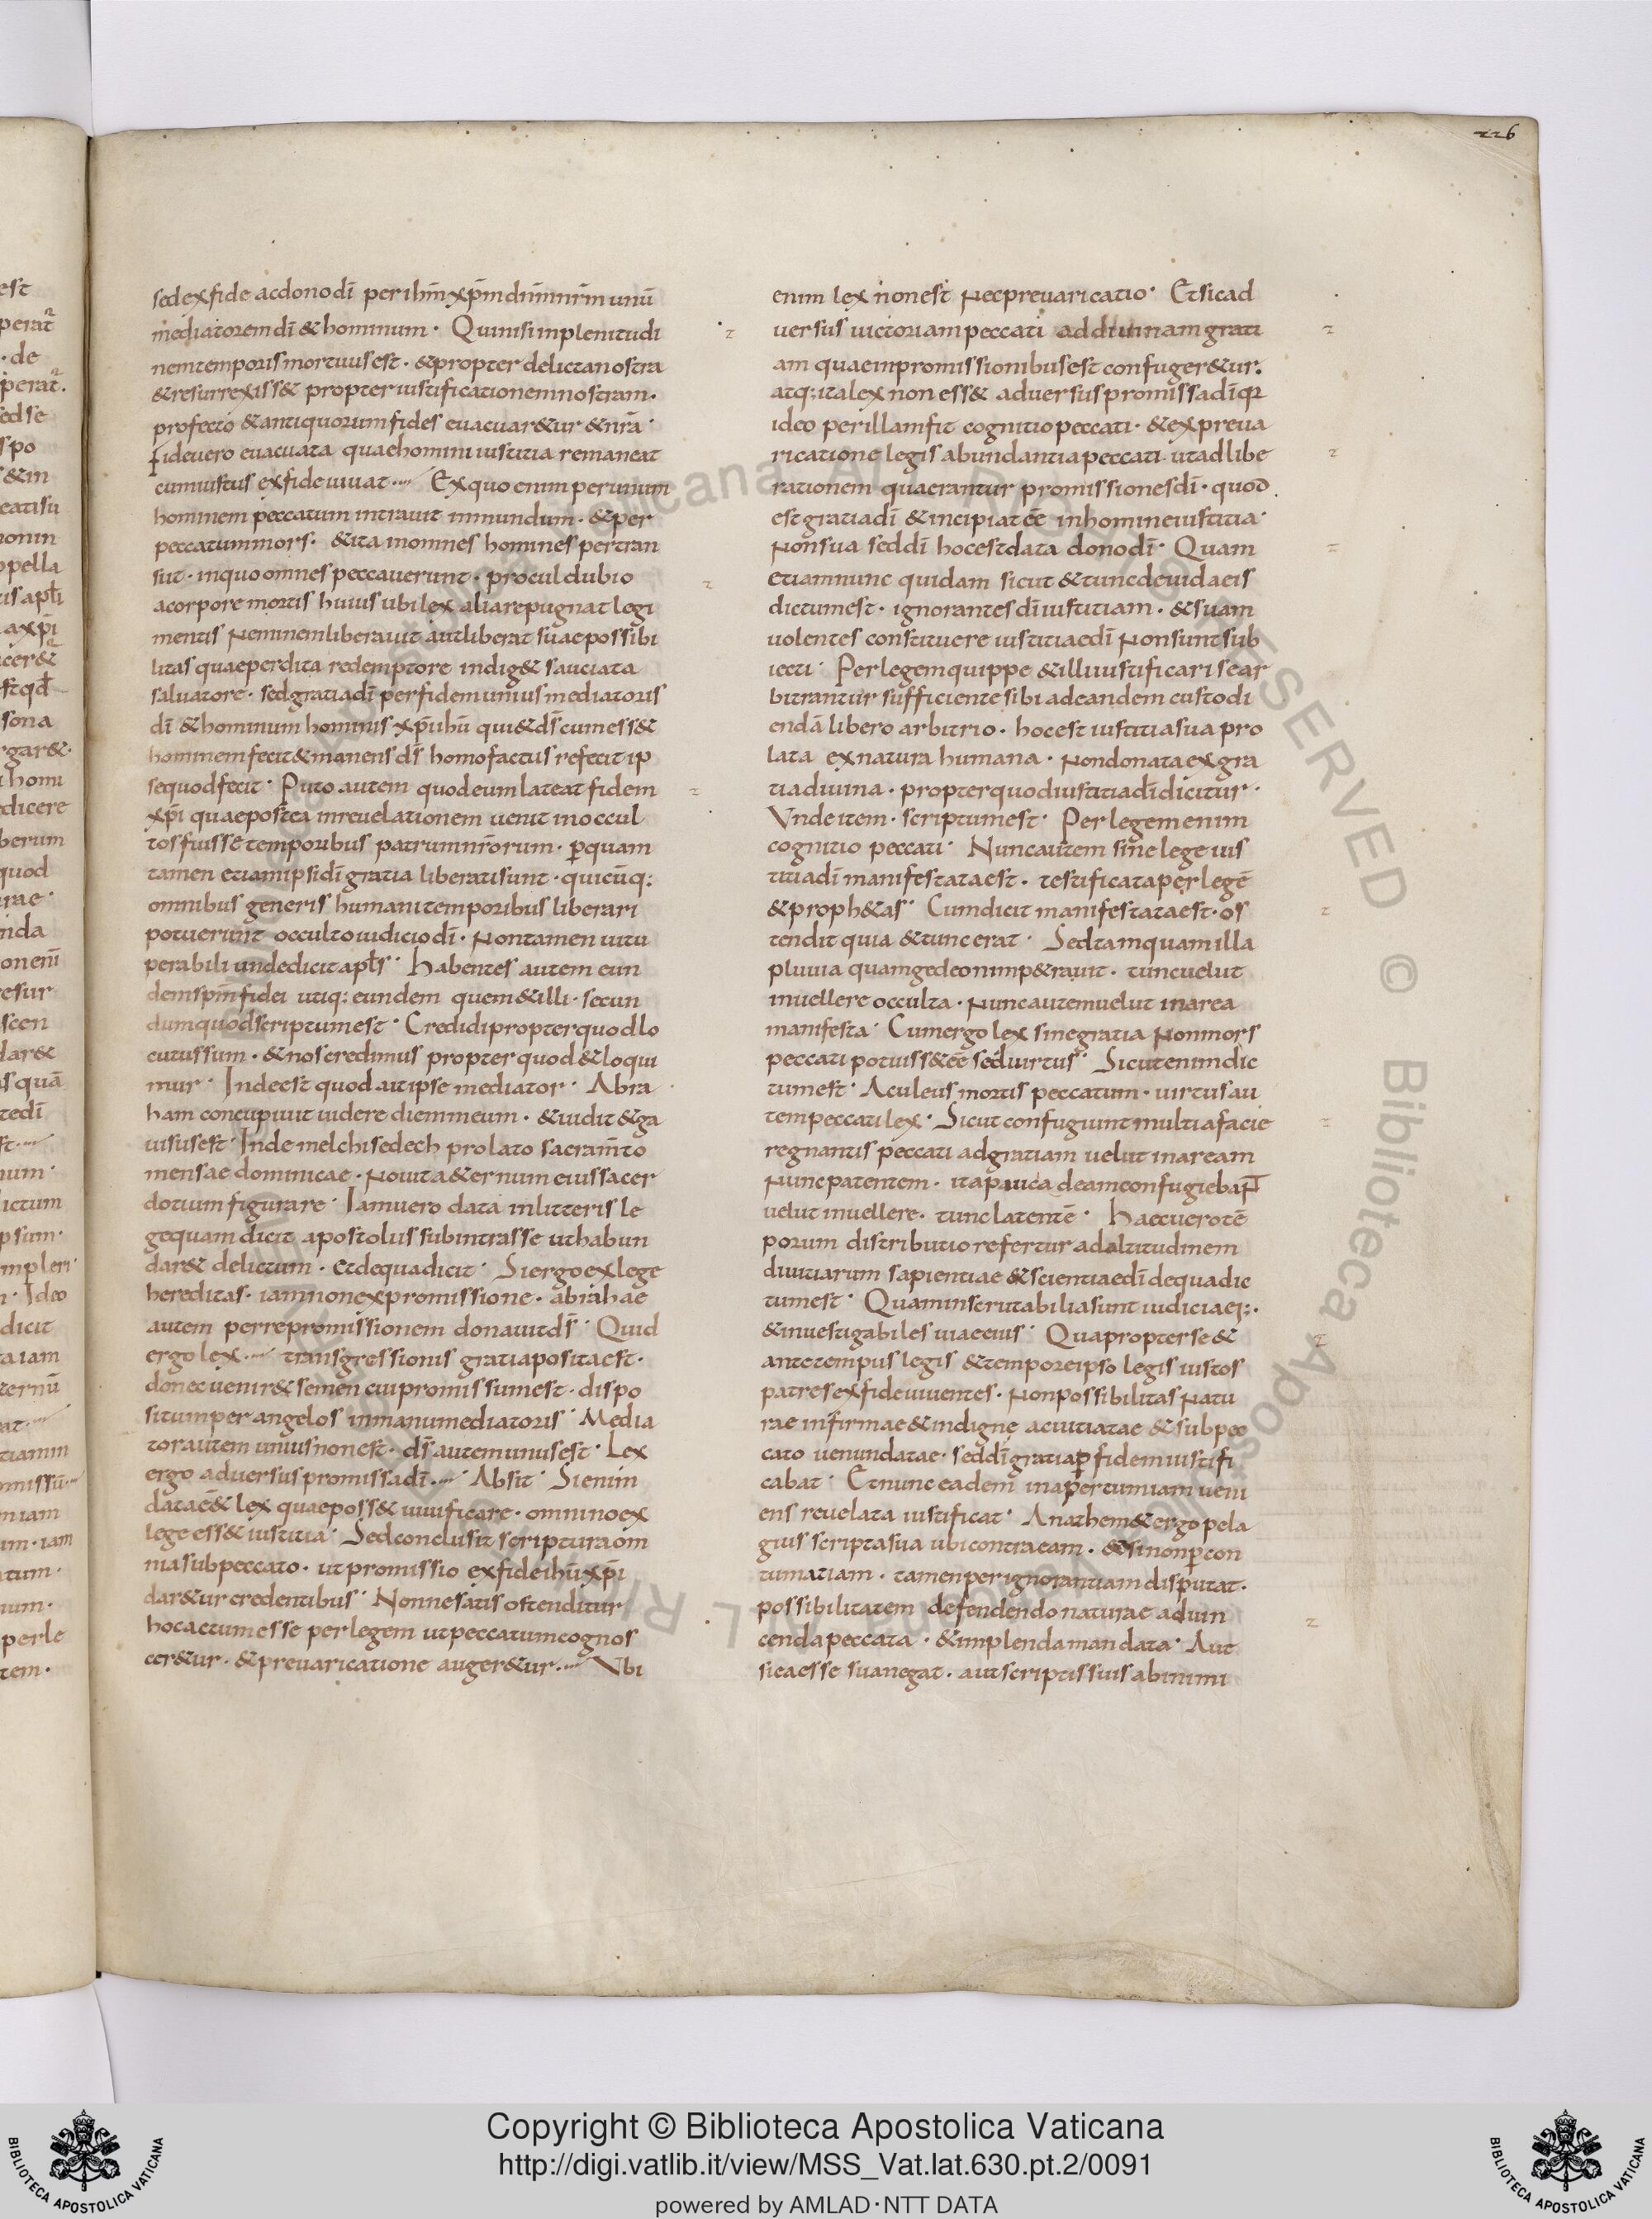 226
sed ex fide ac dono dī per ihm̄ xp̄m dn̄m nr̄m unū
mediatorem dī & hominum · Qui nisi in plenitudi
nem temporis mortuus est · & propter delicta nostra
& resurrexiss& propter iustificationem nostram ·
profecto & antiquorum fides euacuar&ur & nr̄a ·
fide uero euacuata quae homini iustitia remaneat
cum iustus ex fide uiuat ···· Ex quo enim per unum
hominem peccatum intrauit in mundum · & per
peccatum mors · & ita in omnes homines pertran
siit · in quo omnes peccauerunt · procul dubio
a corpore mortis huius ubi lex alia repugnat legi
mentis Neminem liberauit aut liberat suae possibi
litas quae perdita redemptore indig& sauciata
saluatore · sed gratia dī per fidem unius mediatoris
dī & hominum hominis xp̄i ihū qui & ds̄ cum ess&
hominem fecit & manens ds̄ homo factus refecit ip
se quod fecit · Puto autem quod eum lateat fidem
xp̄i quae postea in reuelationem uenit in occul
tos fuisse temporibus patrum nr̄orum · ꝑ quam
tamen etiam ipsi dī gratia liberati sunt · quicūq;
omnibus generis humani temporibus liberari
potuerunt occulto iudicio dī · Non tamen uitu
perabili unde dicit apl̄s · Habentes autem eun
dem spm̄ fidei utiq; eundem quem & illi · secun
dum quod scriptum est · Credidi propter quod lo
cutus sum · & nos credimus propter quod & loqui
mur · Inde est quod ait ipse mediator · Abra
ham concupiuit uidere diem meum · & uidit & ga
uisus est · Inde melchisedech prolato sacram̄to
mensae dominicae · Nouit a&ernum eius sacer
dotium figurare · Iam uero data in litteris le
ge quam dicit apostolus subintrasse ut habun
dar& delictum · Et de qua dicit · Si ergo ex lege
hereditas · iam non ex promissione · abrahae
autem per repromissionem donauit ds̄ · Quid
ergo lex ···· transgressionis gratia posita est ·
donec uenir& semen cui promissum est · dispo
situm per angelos in manu mediatoris · Media
tor autem unius non est · ds̄ autem unus est · Lex
ergo aduersus promissa dī ···· Absit · Si enim
data eē& lex quae poss& uiuificare · omnino ex
lege ess& iustitia · Sed conclusit scriptura om
nia sub peccato · ut promissio ex fide ihū xp̄i
dar&ur credentibus · Nonne satis ostenditur
hoc actum esse per legem ut peccatum cognos
cer&ur · & preuaricatione auger&ur ···· Vbi
enim lex non est Nec preuaricatio · Et sic ad
uersus uictoriam peccati ad diuinam grati
am quae in promissionibus est confuger&ur ·
atq; ita lex non ess& aduersus promissa dī qa
ideo per illam fit cognitio peccati · & ex preua
ricatione legis abundantia peccati · ut ad libe
rationem quaerantur promissiones dī · quod
est gratia dī & incipiat eē in homine iustitia ·
Non sua sed dī hoc est data dono dī · Quam
etiam nunc quidam sicut & tunc de iudaeis
dictum est · ignorantes dī iustitiam · & suam
uolentes constituere iustitiae dī Non sunt sub
iecti · Per legem quippe & illi iustificari se ar
bitrantur sufficiente sibi ad eandem custodi
endā libero arbitrio · hoc est iustitia sua pro
lata ex natura humana · Non donata ex gra
tia diuina · propter quod iustitia dī dicitur ·
Vnde item · scriptum est · Per legem enim
cognitio peccati · Nunc autem sine lege ius
titia dī manifestata est · testificata per legē
& proph&as · Cum dicit manifestata est · os
tendit quia & tunc erat · Sed tamquam illa
pluuia quam gedeon imp&rauit · tunc uelut
in uellere occulta · Nunc autem uelut in area
manifesta · Cum ergo lex sine gratia Non mors
peccati potuiss& eē sed uirtus · Sicut enim dic
tum est · Aculeus mortis peccatum · uirtus au
tem peccati lex · Sicut confugiunt multi a facie
regnantis peccati ad gratiam uelut in aream
Nunc patentem · ita pauci ad eam confugiebant
uelut in uellere · tunc latentē · Haec uero tē
porum distributio refertur ad altitudinem
diuitiarum sapientiae & scientiae dī de qua dic
tum est · Quam inscrutabilia sunt iudicia ei; ·
& inuestigabiles uiae eius · Quapropter se &
ante tempus legis & tempore ipso legis iustos
patres ex fide uiuentes · Non possibilitas Natu
rae infirmae & indignę ac uitiatae & sub pec
cato uenundatae · sed dī gratia ꝑ fidem iustifi
cabat · Et nunc eadem in apertum iam ueni
ens reuelata iustificat · Anathem& ergo pela
gius scripta sua ubi contra eam · & si non ꝑ con
tumatiam · tamen per ignorantiam disputat ·
possibilitatem defendendo naturae ad uin
cenda peccata · & implenda mandata · Aut
si ea esse sua negat · aut scriptis suis ab inimi
Copyright © Biblioteca Apostolica Vaticana
http://digi.vatlib.it/view/MSS_Vat.lat.630.pt.2/0091
powered by AMLAD·NTT DATA
BIBLIOTECA APOSTOLICA VATICANA
BIBLIOTECA APOSTOLICA VATICANA